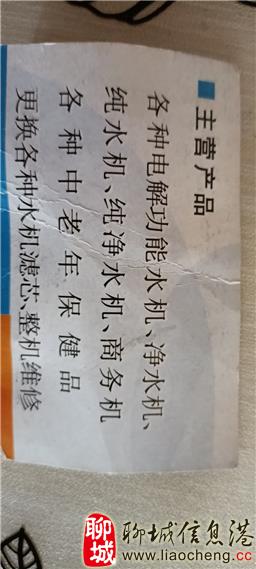 主营产品
各种电解功能水机、净水机、
纯水机、纯净水机、商务机
各种中老年保健品
更换各种水机滤芯、整机维修
聊城 聊城信息港
www.liaocheng.cc